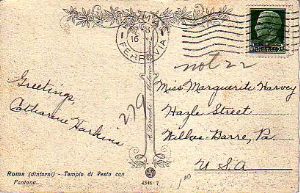 ROMA
FERROVIA
not 22
Greetings,
Catharine Harkins
Miss Marguerite Harvey
Hazle Street
Wilkes-Barre, Pa.
U S A
Roma (dintorni) - Tempio di Vesta con
Fontana.